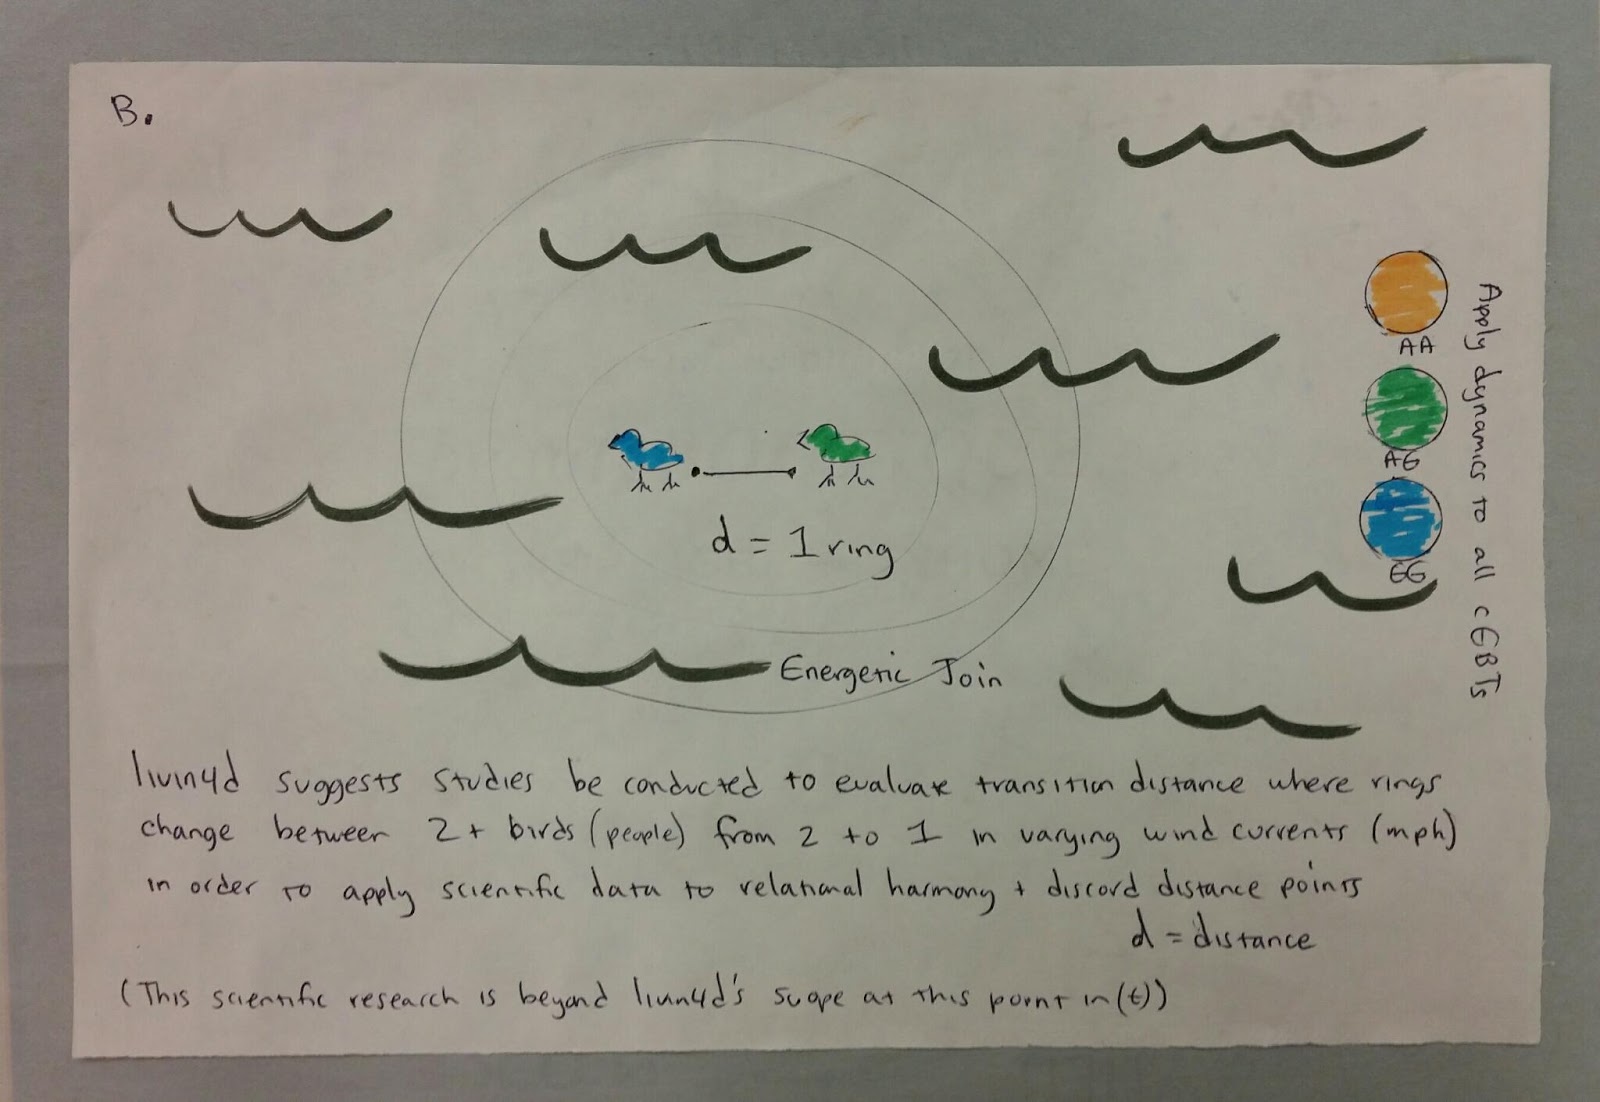 B.
AA
AG
GG
Apply dynamics to all cGBTs
d = 1 ring
Energetic Join
livin4d suggests studies be conducted to evaluate transition distance where rings
change between 2+ birds (people) from 2 to 1 in varying wind currents (mph)
in order to apply scientific data to relational harmony + discord distance points
d = distance
(This scientific research is beyond livin4d's scope at this point in (t))